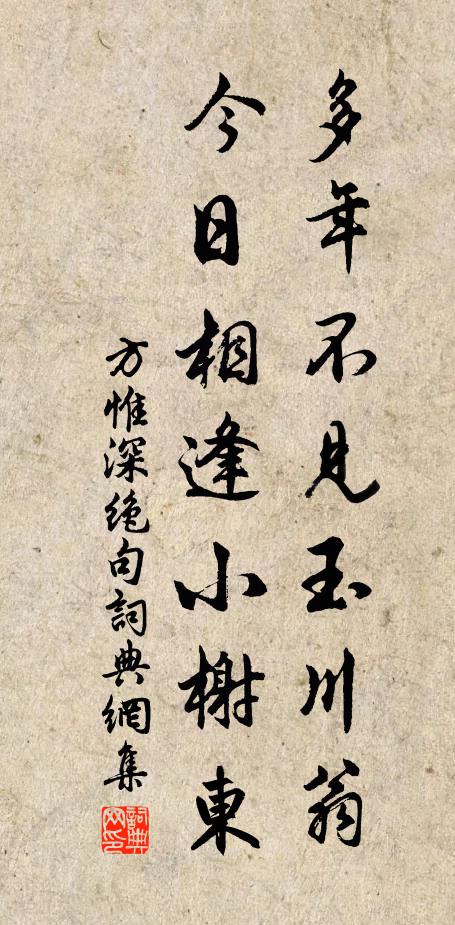 多年不見玉川翁
今日相逢小榭東
方惟深絶句詞典網集
詞典网印